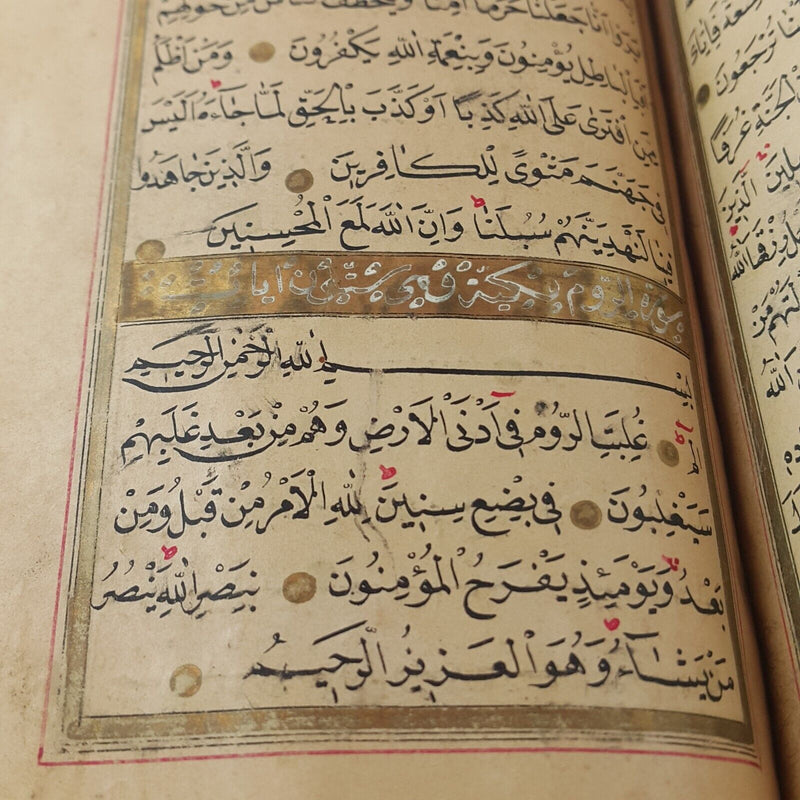 يروا انا جعلنا حرما امنا ويتخطف الناس من حولهم
اَفَبِالْبَاطِلِ يُؤْمِنُونَ وَبِنِعْمَةِ اللّٰهِ يَكْفُرُونَ وَمَنْ اَظْلَمُ
مِمَّنِ افْتَرٰى عَلَى اللّٰهِ كَذِبًا اَوْ كَذَّبَ بِالْحَقِّ لَمَّا جَٓاءَهُ اَلَيْسَ
فِي جَهَنَّمَ مَثْوًى لِلْكَافِرِينَ وَالَّذِينَ جَاهَدُوا
فِينَا لَنَهْدِيَنَّهُمْ سُبُلَنَا وَاِنَّ اللّٰهَ لَمَعَ الْمُحْسِنِينَ
سورة الروم مكية وهي ستون آيات
بِسْمِ اللّٰهِ الرَّحْمٰنِ الرَّحِيمِ
الٓمٓ غُلِبَتِ الرُّومُ فِٓي اَدْنَى الْاَرْضِ وَهُمْ مِنْ بَعْدِ غَلَبِهِمْ
سَيَغْلِبُونَ فِي بِضْعِ سِنِينَ لِلّٰهِ الْاَمْرُ مِنْ قَبْلُ وَمِنْ
بَعْدُ وَيَوْمَئِذٍ يَفْرَحُ الْمُؤْمِنُونَ بِنَصْرِ اللّٰهِ يَنْصُرُ
مَنْ يَشَٓاءُ وَهُوَ الْعَزِيزُ الرَّحِيمُ
تُرْجَعُونَ
الْجَنَّةِ غُرَفًا
الَّذِينَ